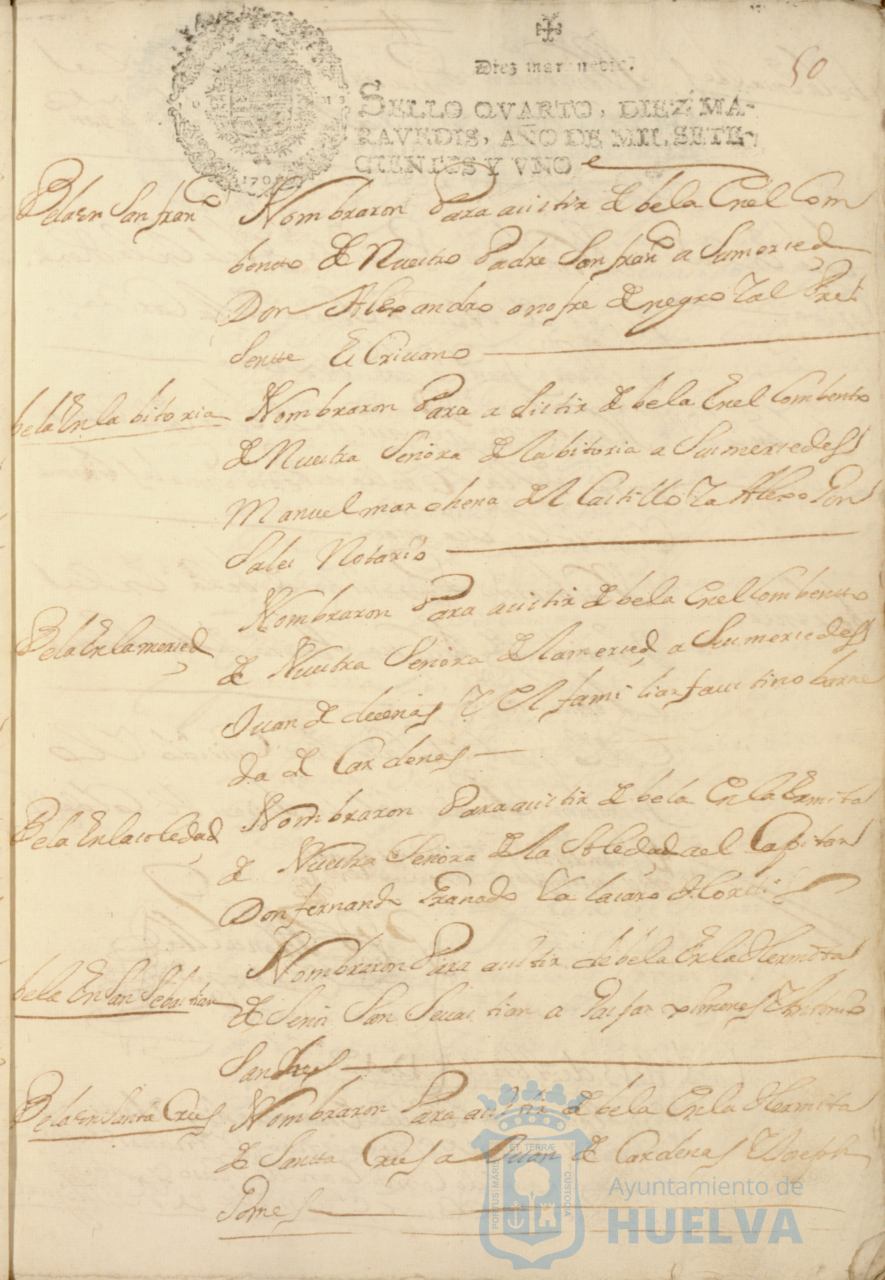 50
Diez marauedis.
SELLO QVARTO, DIEZ MA-
RAVEDIS, AÑO DE MIL SETE-
CIENTOS Y VNO
1701
Bela En San franco
Nombraron Para acistir de bela En el Com
bento de Nuestro Padre San franco a Su merced
Don Alexandro onofre de negro Y al Pre
sentte Escriuano
bela En la bitoria
Nombraron Para asistir de bela En el Combento
de Nuestra Señora de la bitoria a Sus mercedes
Manuel marchena del Castillo Y a Alexo Gon
Sales Notario
Bela En la merced
Nombraron Para acistir de bela En el Combento
de Nuestra Señora de la merced a Sus mercedes
Juan de Y el familiar faustino
da de Cardenas
Bela En la soledad
Nombraron Para acistir de bela En la Ermita
de Nuestra Señora de la Soledad a el Capitan
Don fernando Granado Y a lasaro
bela En San Sebastian
Nombraron Para acistir de bela En la Hermita
de Señor San Seuastian a Gaspar ximenes Y Antonio
Sanches
Bela En Santa Crus
Nombraron Para acistir de bela En la Hermita
de Santa Crus a Juan de Cardenas Y Joseph
Gomes
PORTUS MARIS
ET TERRÆ
CUSTODIA
Ayuntamiento de
HUELVA